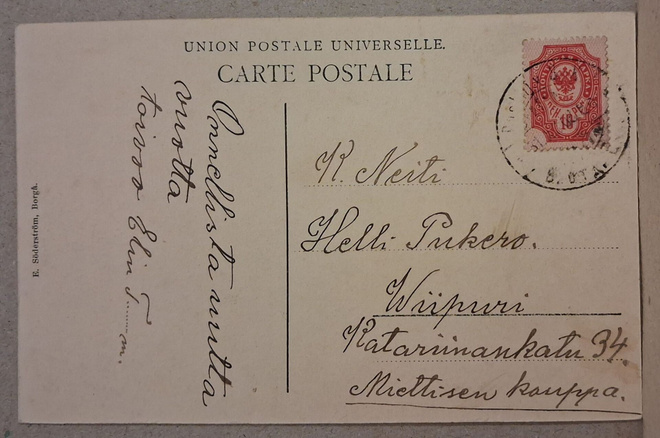 UNION POSTALE UNIVERSELLE.
CARTE POSTALE
Onnellista uutta
vuotta
toivoo Elin
K Neiti
Helli Pukero.
Wiipuri
Katariinankatu 34.
Miettisen kauppa.
E. Söderström, Borgå.
10